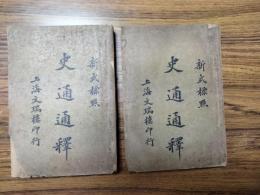 新式標點
史通通釋
上海文瑞樓印行
新式標點
史通通釋
上海文瑞樓印行